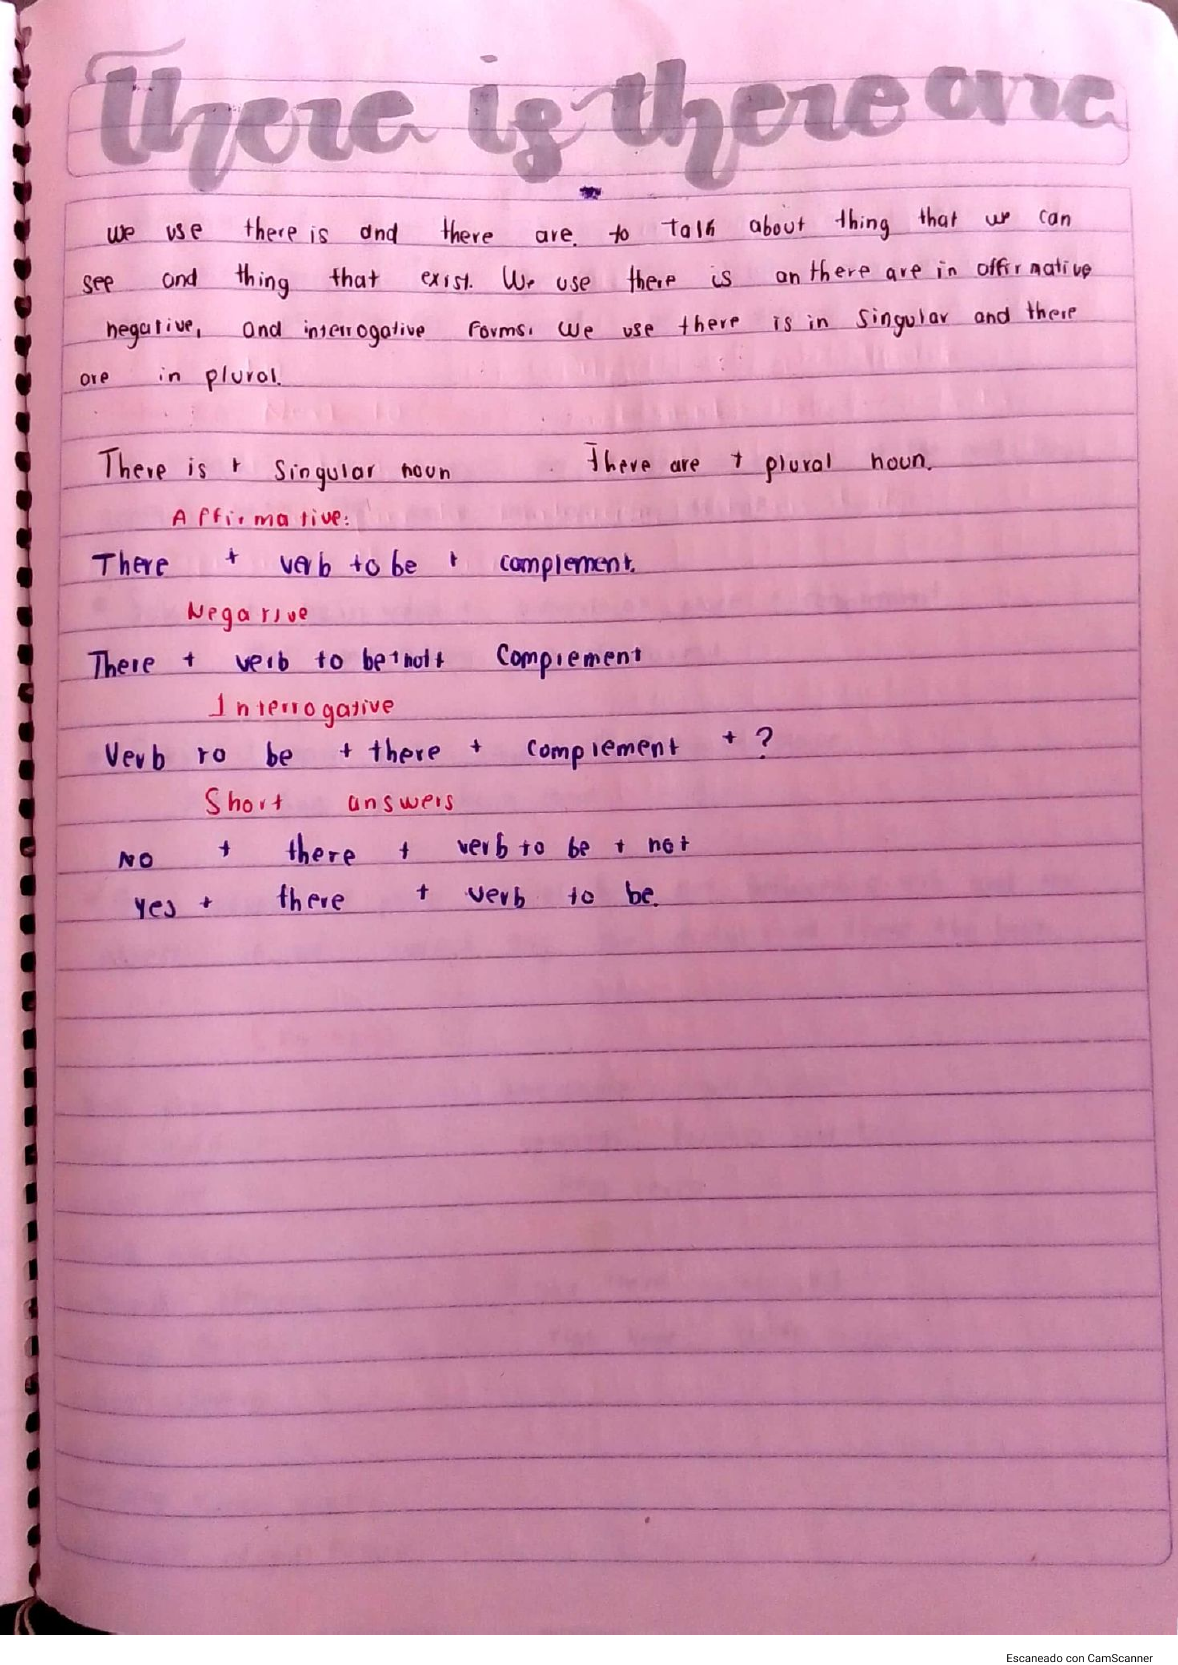 There is there are
we use there is and there are. to talk about thing that we can
see and thing that exist. We use there is an there are in affirmative
negative, and interrogative forms. We use there is in singular and there
are in plural.
There is + singular noun There are + plural noun.
Affirmative:
There + verb to be + complement.
Negative
There + verb to be + not + complement
Interrogative
Verb to be + there + complement + ?
Short answers
No + there + verb to be + not
Yes + there + verb to be.
Escaneado con CamScanner